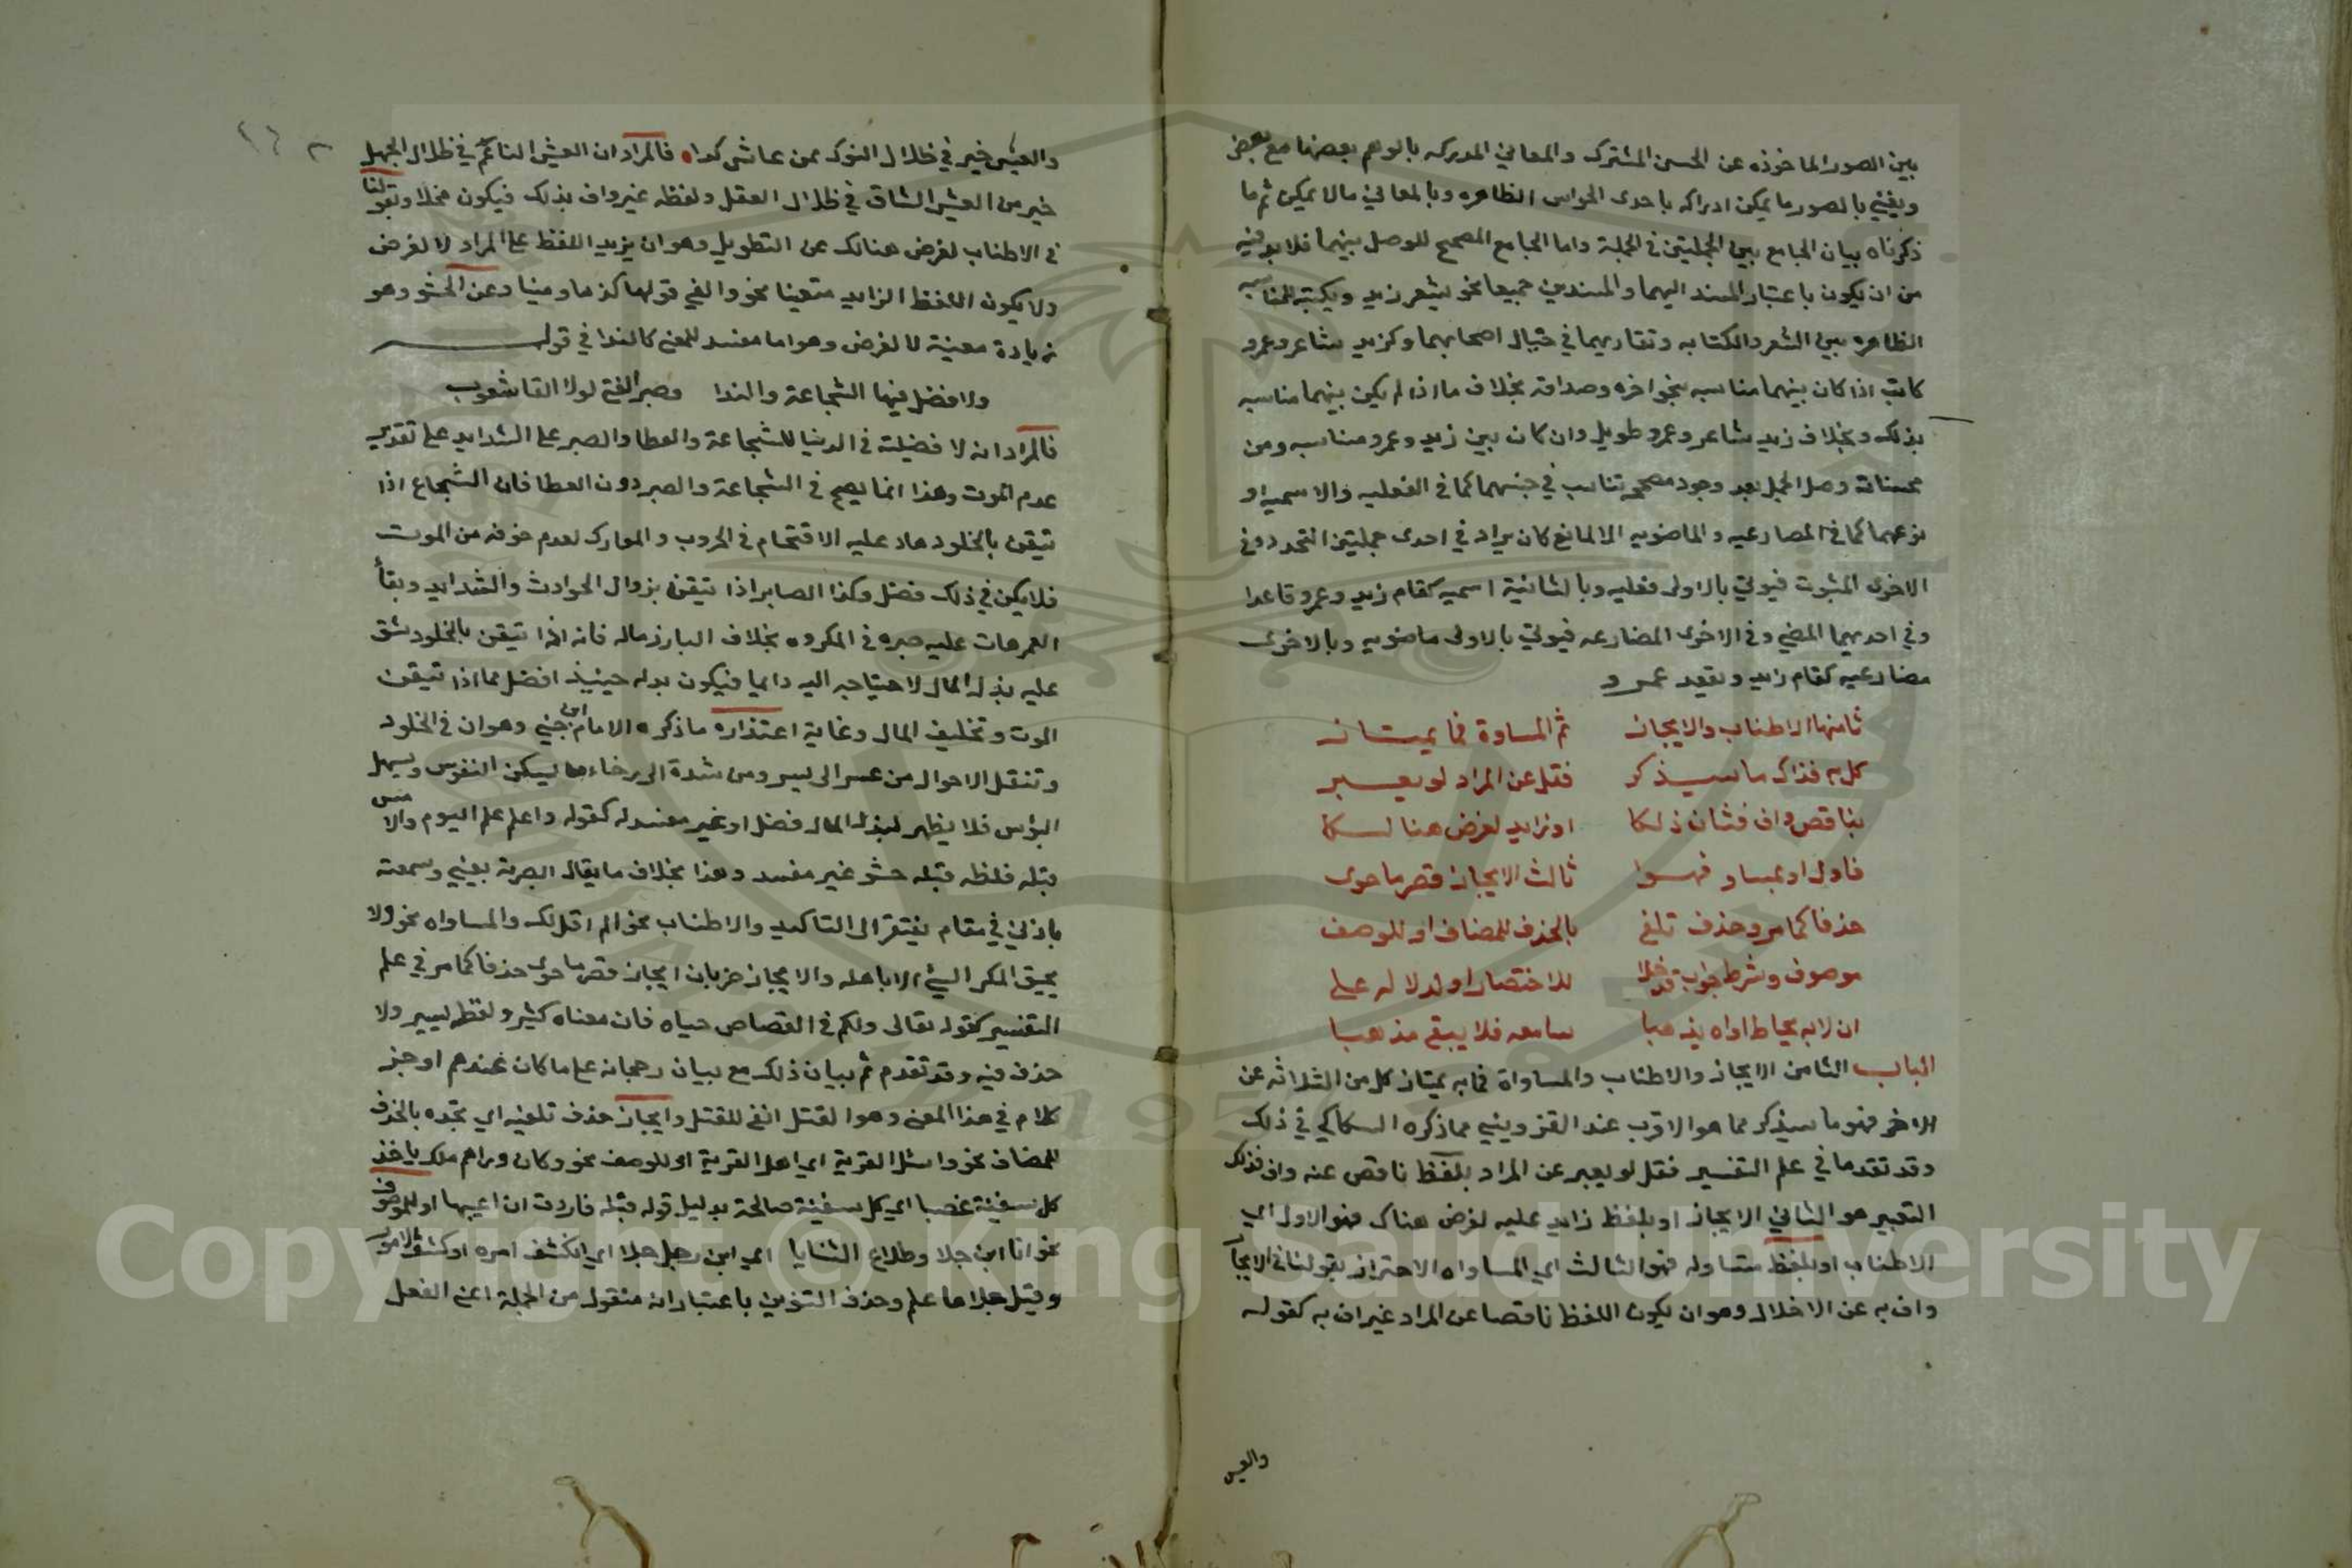 بين الصور الماخوذه عن الحسن المشترك والمعاني المدركه بالوهم بعضها مع بعض
ويعني بالصور ما يمكن ادراكه باحدى الحواس الظاهره وبالمعاني مالا يمكن ثم ما
ذكرناه بيان الجامع بين الجملتين في الجملة واما الجامع المصحح للوصل بينهما فلابد فيه
من ان يكون باعتبار المسند اليهما والمسندين جميعا نحو يشعر زيد ويكتب للمناسبه
الظاهره بين الشعر والكتابه وتقاربهما في خيال اصحابهما وكزيد شاعر وعمرو
كاتب اذا كان بينهما مناسبه بنحو اخوه وصداقه بخلاف ما اذا لم يكن بينهما مناسبه
بذلك وبخلاف زيد شاعر وعمرو طويل وان كان بين زيد وعمرو مناسبه ومن
محسنات وصل الجمل بعد وجود مصححه تناسب في جنسهما كما في الفعليه والاسميه او
نوعهما كما في المضارعيه والماضويه الا لمانع كان يراد في احدى جملتين التجدد وفي
الاخرى الثبوت فيوتى بالاولى فعليه وبالثانية اسميه كقام زيد وعمرو قاعدا
وفي احديهما المضي وفي الاخرى المضارعه فيوتى بالاولى ماضويه وبالاخرى
مضارعيه كقام زايد ويقعد عمرو
ثامنها الاطناب والايجاز ثم المساوة فما يمتاز
كل به فذاك ما سيذكر فقل عن المراد لو يعبر
بناقص واف فثان ذلكا او زايد لغرض هنالكا
فاول او بمساو فهوا ثالث الايجاز قصر ما حوى
حذفا كما مر وحذف تلفي بالحذف للمضاف او للوصف
موصوف وشرط جواب قد خلا للاختصار او لدلاله على
ان لا به يحاط اواه يذهبا سامعه فلا يبقي مذهبا
الباب الثامن الايجاز والاطناب والمساواة فما به يمتاز كل من الثلاثه عن
الاخر فهو ما سيذكر مما هو الاقرب عند القزويني مما ذكره السكاكي في ذلك
وقد تقدما في علم التفسير فقل لو يعبر عن المراد بلفظ ناقص عنه واف فذلك
التعبير هو الثاني الايجاز او بلفظ زايد عليه لغرض هناك فهو الاول اي
الاطناب او بلفظ متساوله فهو الثالث اي المساواه الاحتراز بقولنا في الايجا
واف به عن الاخلال وهو ان يكون اللفظ ناقصا عن المراد غير اف به كقوله
والعيش
والعيش خير في ظلال النوك ممن عاش كدا، فالمراد ان العيش الناعم في ظلال الجهل
خير من العيش الشاق في ظلال العقل ولفظه غير واف بذلك فيكون مخلا وبقولنا
في الاطناب لغرض هنالك عن التطويل وهو ان يزيد اللفظ على المراد لا لغرض
ولا يكون اللفظ الزايد متعينا نحو والفي قولها كذبا ومينا وعن الحشو وهو
زيادة معينة لا لغرض وهو اما مفسد للمعنى كالندا في قوله
ولا فضل فيها الشجاعة والندا وصبر الفتى لولا لقا شعوب
فالمراد انه لا فضيلة في الدنيا للشجاعة والعطا والصبر على الشدايد على تقدير
عدم الموت وهذا انما يصح في الشجاعة والصبر دون العطا فان الشجاع اذا
تيقن بالخلود هاد عليه الاقتحام في الحروب والمعارك لعدم خوفه من الموت
فلا يكن في ذلك فضل وكذا الصابر اذا تيقن بزوال الحوادث والشدايد وبقأ
العمر هات عليه صبره في المكروه بخلاف البارز ماله فانه اذا تيقن بالخلود شق
عليه بذل المال لاحتياجه اليه دايما فيكون بدله حينيذ افضل مما اذا تيقن
الموت وتخليف المال وغاية اعتذاره ما ذكره الامام ابن جني وهو ان في الخلود
وتنقل الاحوال من عسر الى يسر ومن شدة الى رخاء ما يسكن النفوس ويسهل
البؤس فلا يظهر لبذل المال فضل او غير مفسد له كقوله واعلم علم اليوم والامس
قبله فلفظه قبله حشو غير مفسد وهذا بخلاف ما يقال ابصرته بعيني وسمعته
باذني في مقام يفتقر الى التاكيد والاطناب نحو الم اقل لك والمساواه نحو ولا
يحيق المكر السيئ الا باهله والايجاز ضربان ايجاز قصر ما حوى حذفا كما مر في علم
التفسير كقوله تعالى ولكم في القصاص حياه فان معناه كثير ولفظه يسير ولا
حذف فيه وقد تقدم ثم بيان ذلك مع بيان رجحانه على ما كان عندهم اوجز
كلام في هذا المعنى وهو القتل انفى للقتل وايجاز حذف تلفيه اي تجده بالحذف
للمضاف نحو واسئل القرية اي اهل القرية او للوصف نحو وكان وراهم ملك ياخذ
كل سفينة غصبا اي كل سفينة صالحة بدليل قوله قبله فاردت ان اعيبها او للموصوف
نحو انا ابن جلا وطلاع الثنايا اي ابن رجل جلا اي انكشف امره او كشف الامور
وقيل جلاها علم وحذف التنوين باعتبار انه منقول من الجملة اعنى الفعل
Copyright © King Saud University
1957